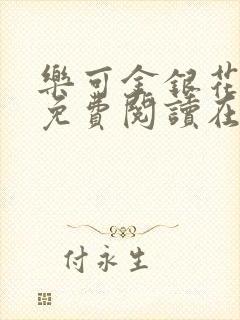 樂可金銀花
免費閱讀在
付永生